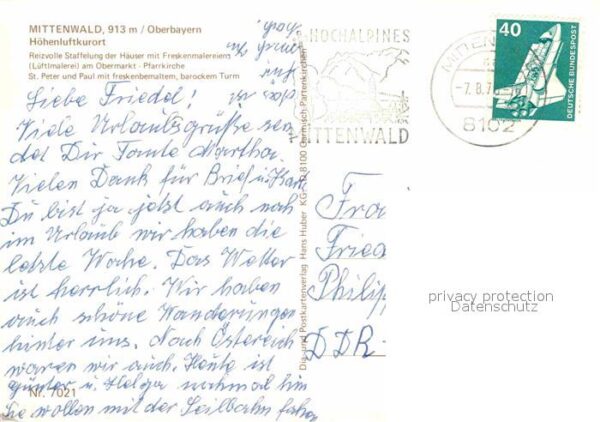 MITTENWALD, 913 m / Oberbayern
Höhenluftkurort
Reizvolle Staffelung der Häuser mit Freskenmalereien
(Lüftlmalerei) am Obermarkt · Pfarrkirche
St. Peter und Paul mit freskenbemaltem, barockem Turm
Liebe Friedel!
Viele Urlaubsgrüße sen
det Dir Tante Martha.
Vielen Dank für Brief u. Karte
Du bist ja jetzt auch noch
im Urlaub wir haben die
letzte Woche. Das Wetter
ist herrlich. Wir haben
auch schöne Wanderungen
hinter uns. Nach Österreich
waren wir auch. Heute ist
Günter u. Helga nochmal hin
Sie wollen mit der Seilbahn fahren
Nr. 7021
Die- und Postkartenverlag Hans Huber KG · D 8100 Garmisch-Partenkirchen
HOCHALPINES
MITTENWALD
MITTEN
-7.8.7
8102
40
DEUTSCHE BUNDESPOST
Fra
Fried
Philip
DDR-
privacy protection
Datenschutz